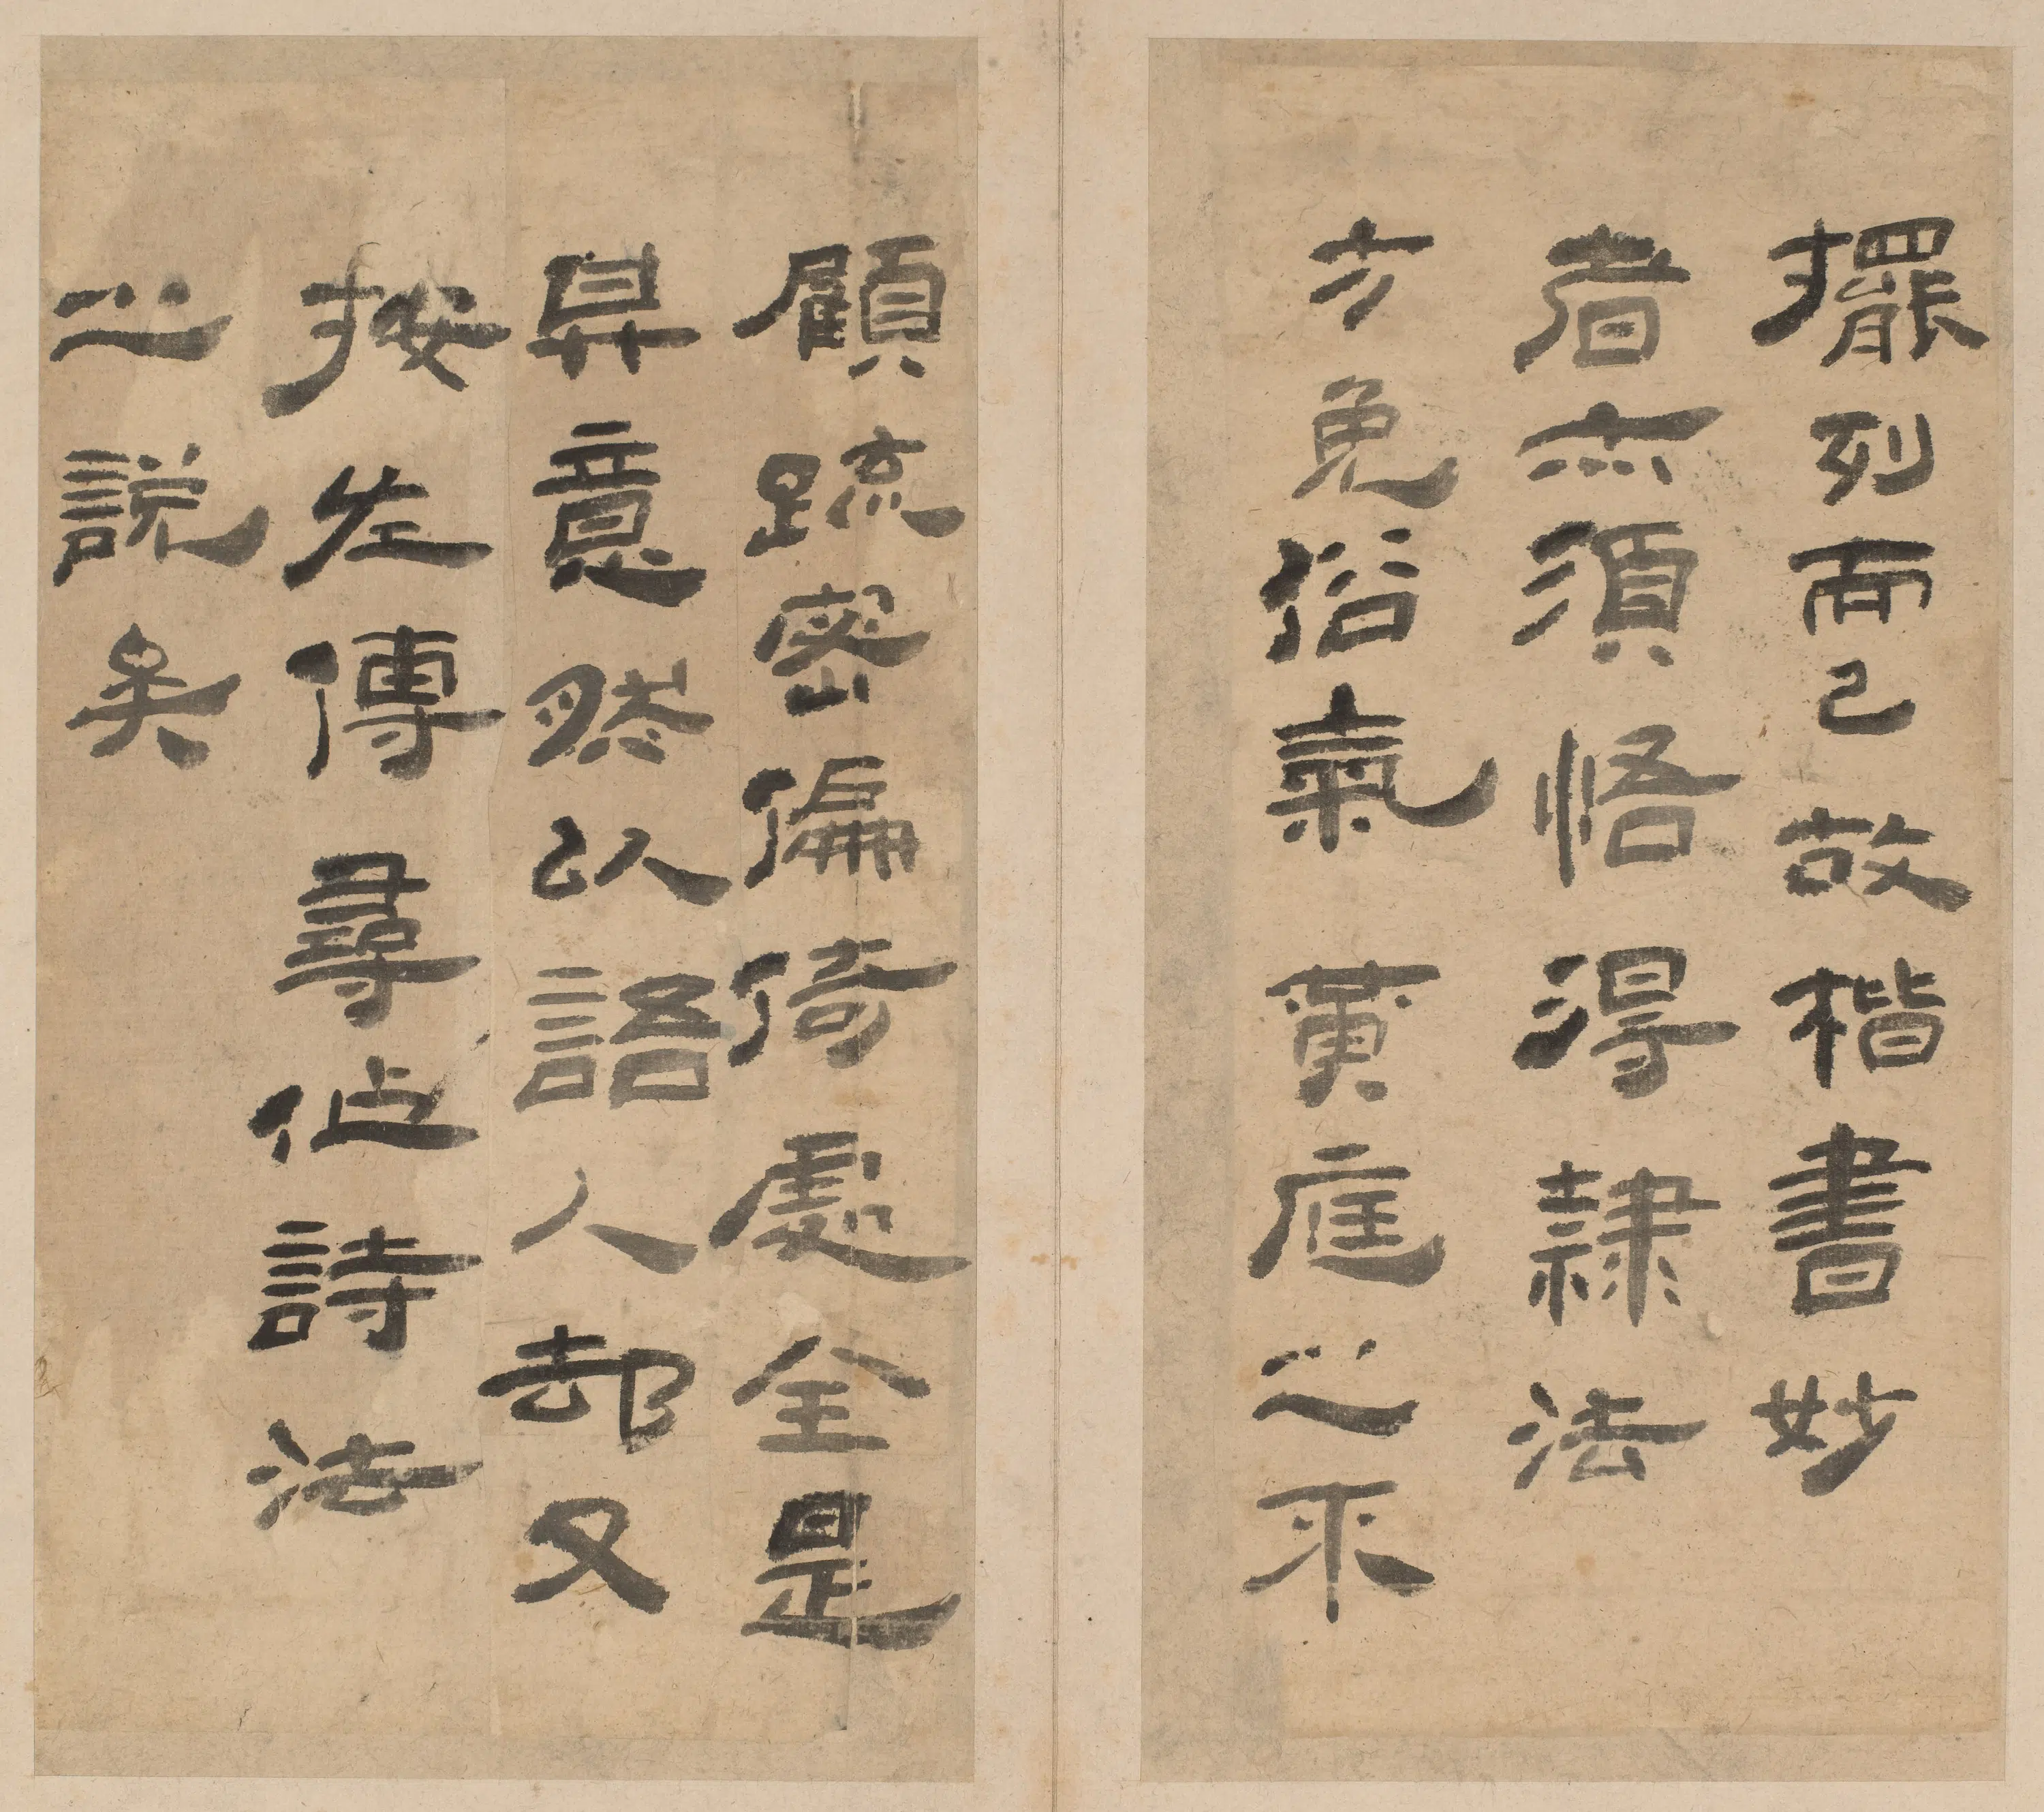 擺列而已故楷書妙
者亦須悟得隸法
方免俗氣黃庭之不
顧疏密偏倚處全是
意然以語人却又
按左傳尋作詩法
之說矣